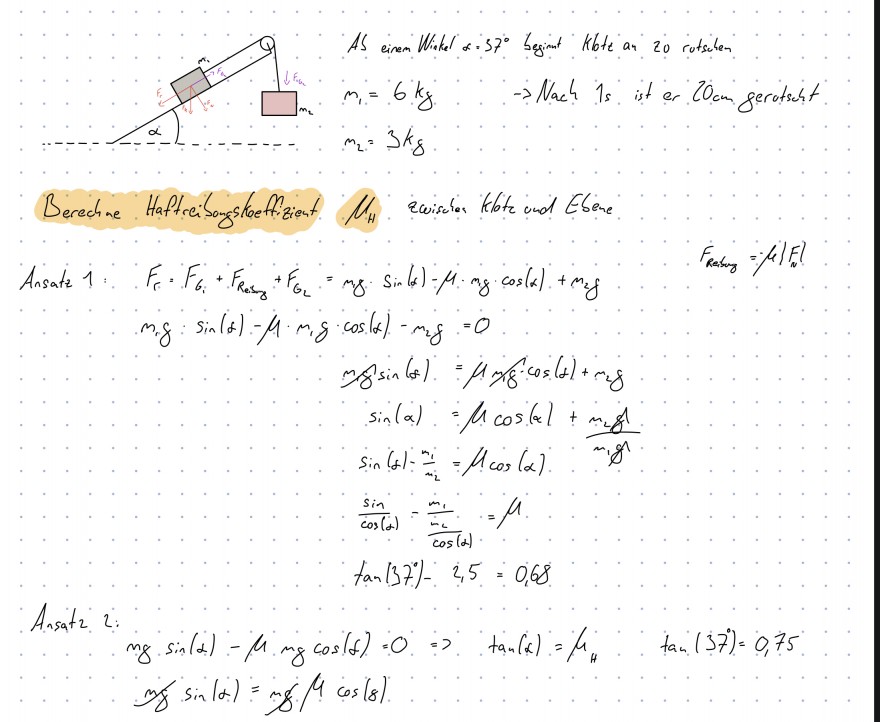 Ab einem Winkel α = 37° beginnt Klotz an zu rutschen
m₁ = 6 kg -> Nach 1s ist er 20cm gerutscht
m₂ = 3 kg
m₁
m₂
α
Berechne Haftreibungskoeffizient μ_H zwischen Klotz und Ebene
F_Reibung = μ|F_N|
Ansatz 1: F_r = F_G₁ + F_Reibung + F_G₂ = mg · sin(α) - μ · mg · cos(α) + m₂g
m₁g · sin(α) - μ · m₁g · cos(α) - m₂g = 0
m₁g sin(α) = μ m₁g · cos(α) + m₂g
sin(α) = μ cos(α) + m₂g/m₁g
sin(α) - m₁/m₂ = μ cos(α)
sin/cos(α) - (m₁/m₂)/cos(α) = μ
tan(37°) - 2,5 = 0,68
Ansatz 2:
mg sin(α) - μ mg cos(α) = 0 => tan(α) = μ_H tan(37°) = 0,75
mg sin(α) = mg μ cos(α)